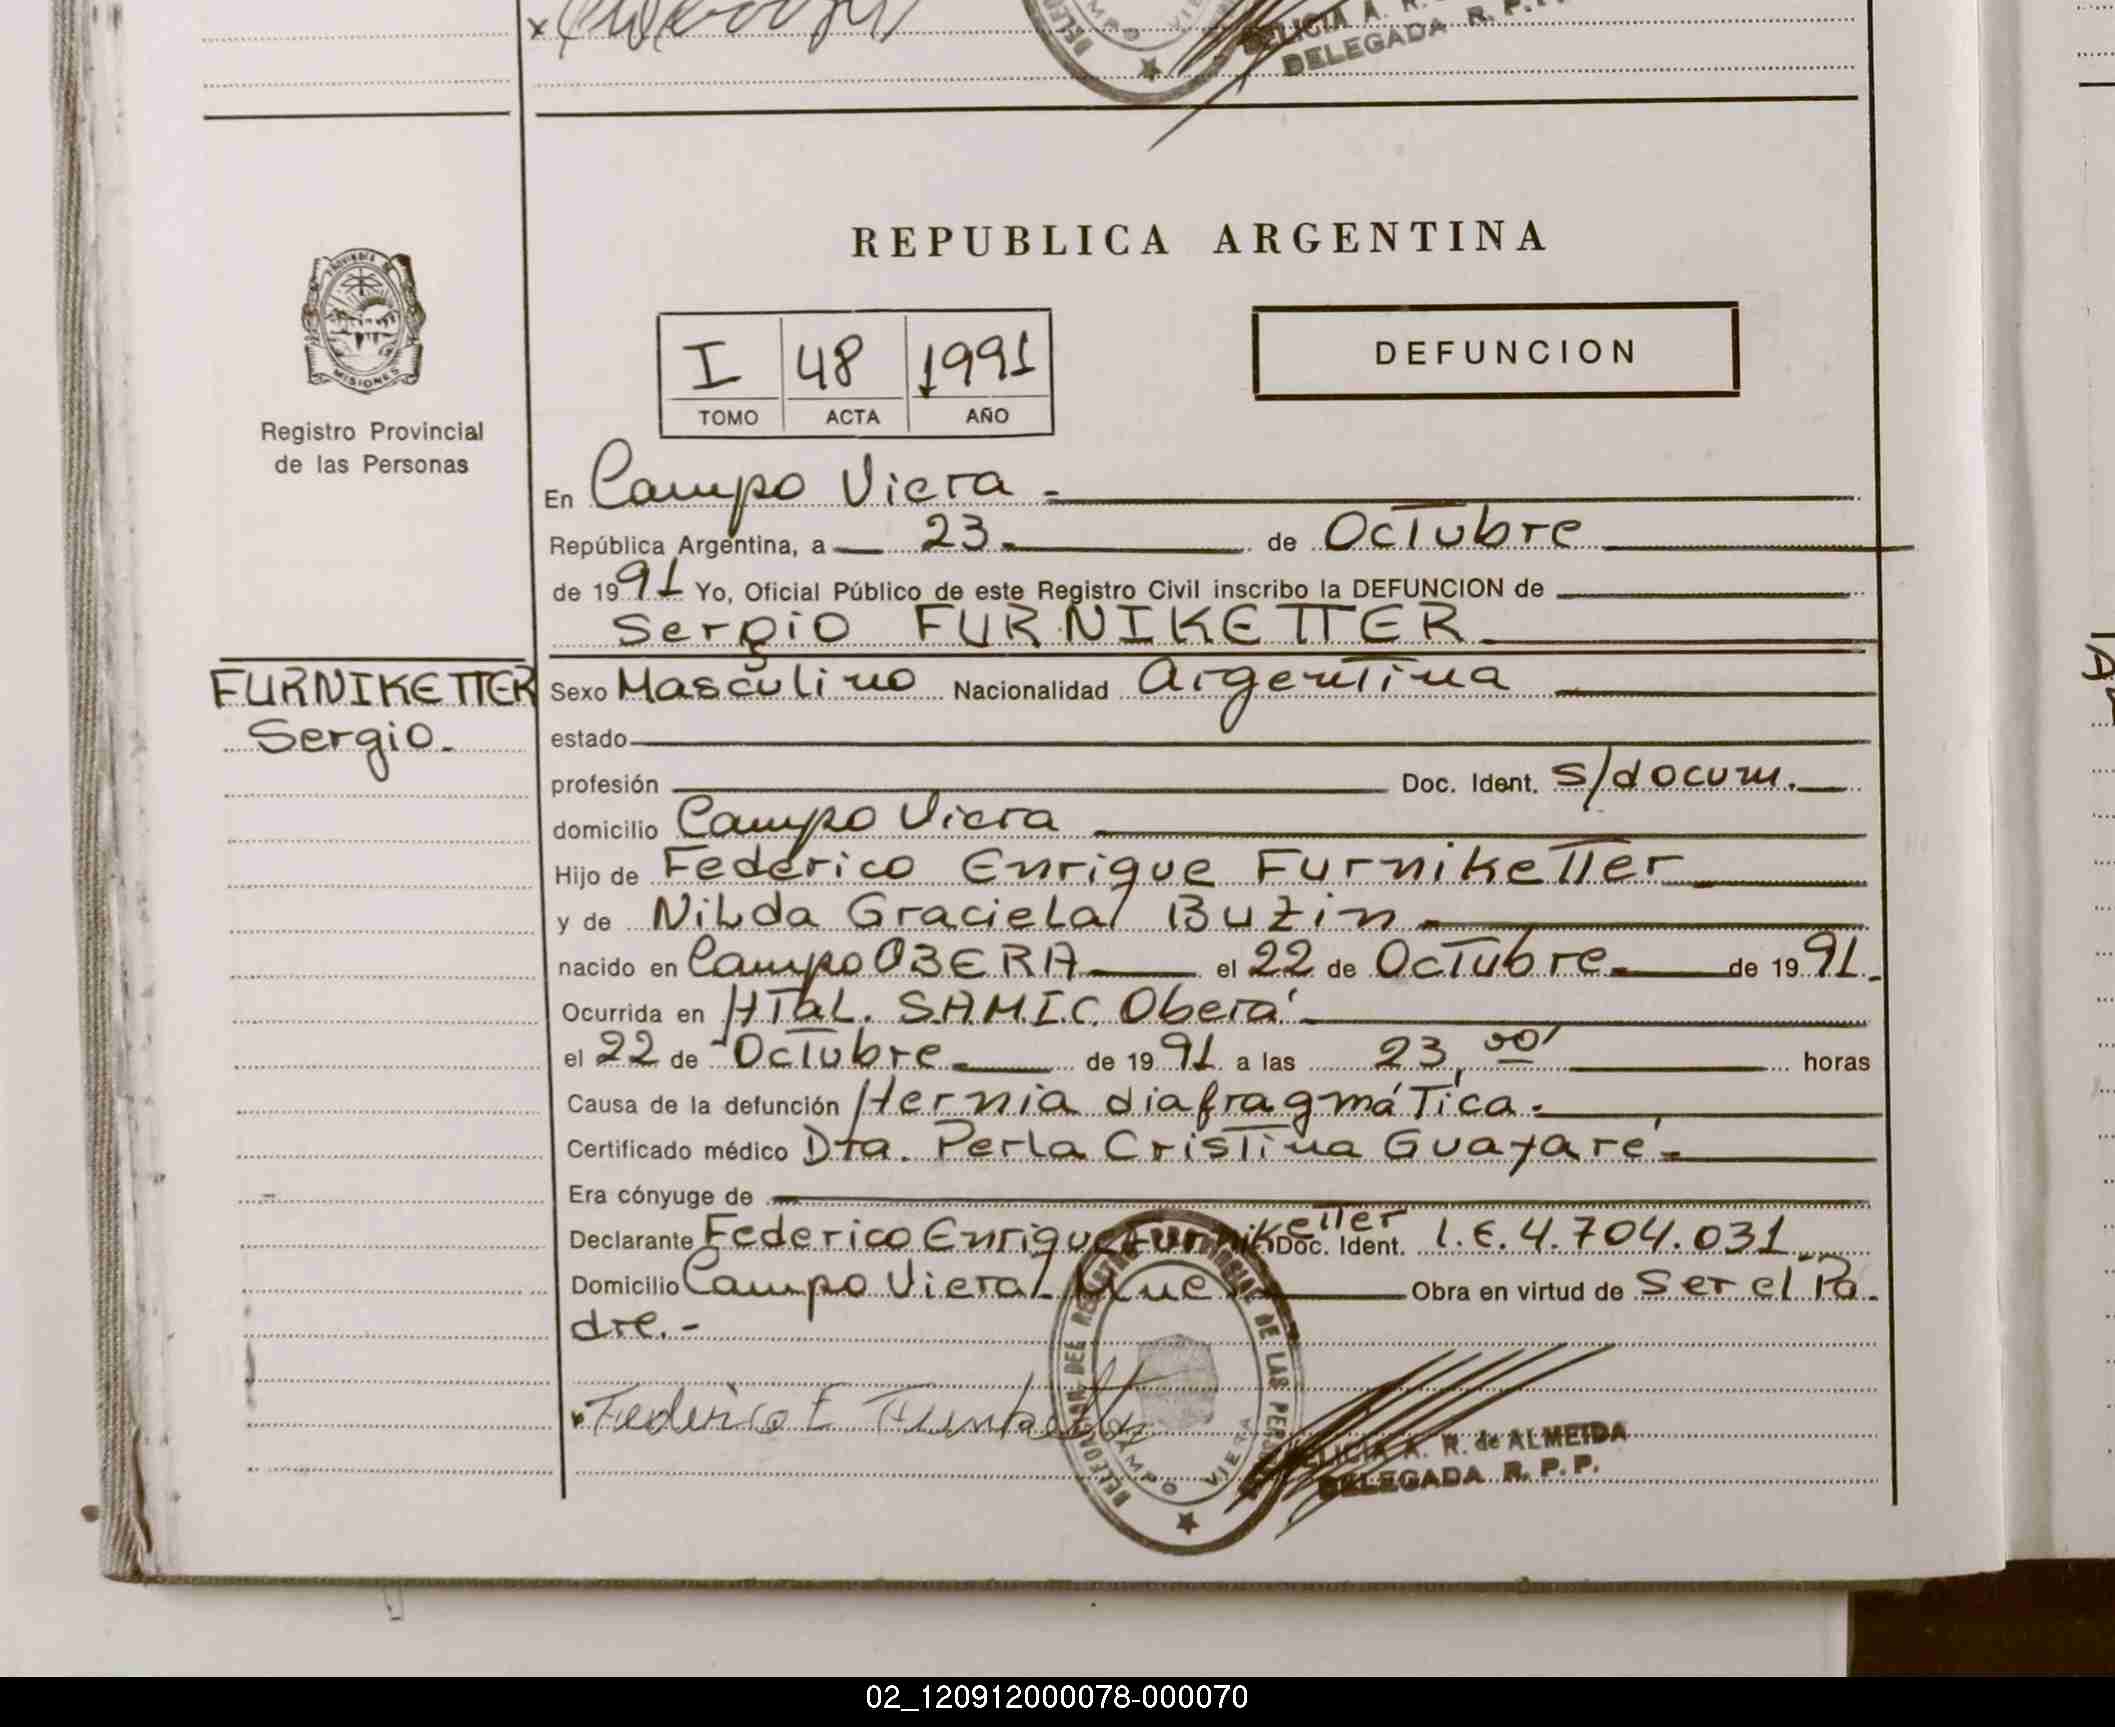 DELEGADA R. P. P.
REPUBLICA ARGENTINA
PROVINCIA DE
MISIONES
Registro Provincial
de las Personas
I 48 1991
TOMO ACTA AÑO
DEFUNCION
En Campo Viera.-
República Argentina, a 23. de Octubre
de 1991 Yo, Oficial Público de este Registro Civil inscribo la DEFUNCION de
Sergio FURNIKETTER.
FURNIKETTER
Sergio.
Sexo Masculino Nacionalidad Argentina
estado
profesión Doc. Ident. s/docum.
domicilio Campo Viera
Hijo de Federico Enrique Furniketter
y de Nilda Graciela Buzin.
nacido en Campo OBERA el 22 de Octubre. de 1991.
Ocurrida en HTaL. S.A.M.I.C. Oberá.
el 22 de Octubre. de 1991. a las 23,00' horas
Causa de la defunción Hernia diafragmática.-
Certificado médico Dra. Perla Cristina Guayaré.-
Era cónyuge de
Declarante Federico Enrique Furniketter Doc. Ident. L.E.4.704.031
Domicilio Campo Viera. Mnes. Obra en virtud de Ser el Pa.
dre.-
Federico E
DELEGACION DEL REGISTRO PROVINCIAL DE LAS PERSONAS
CAMPO VIERA
FELICIA A. R. de ALMEIDA
DELEGADA R. P. P.
02_120912000078-000070